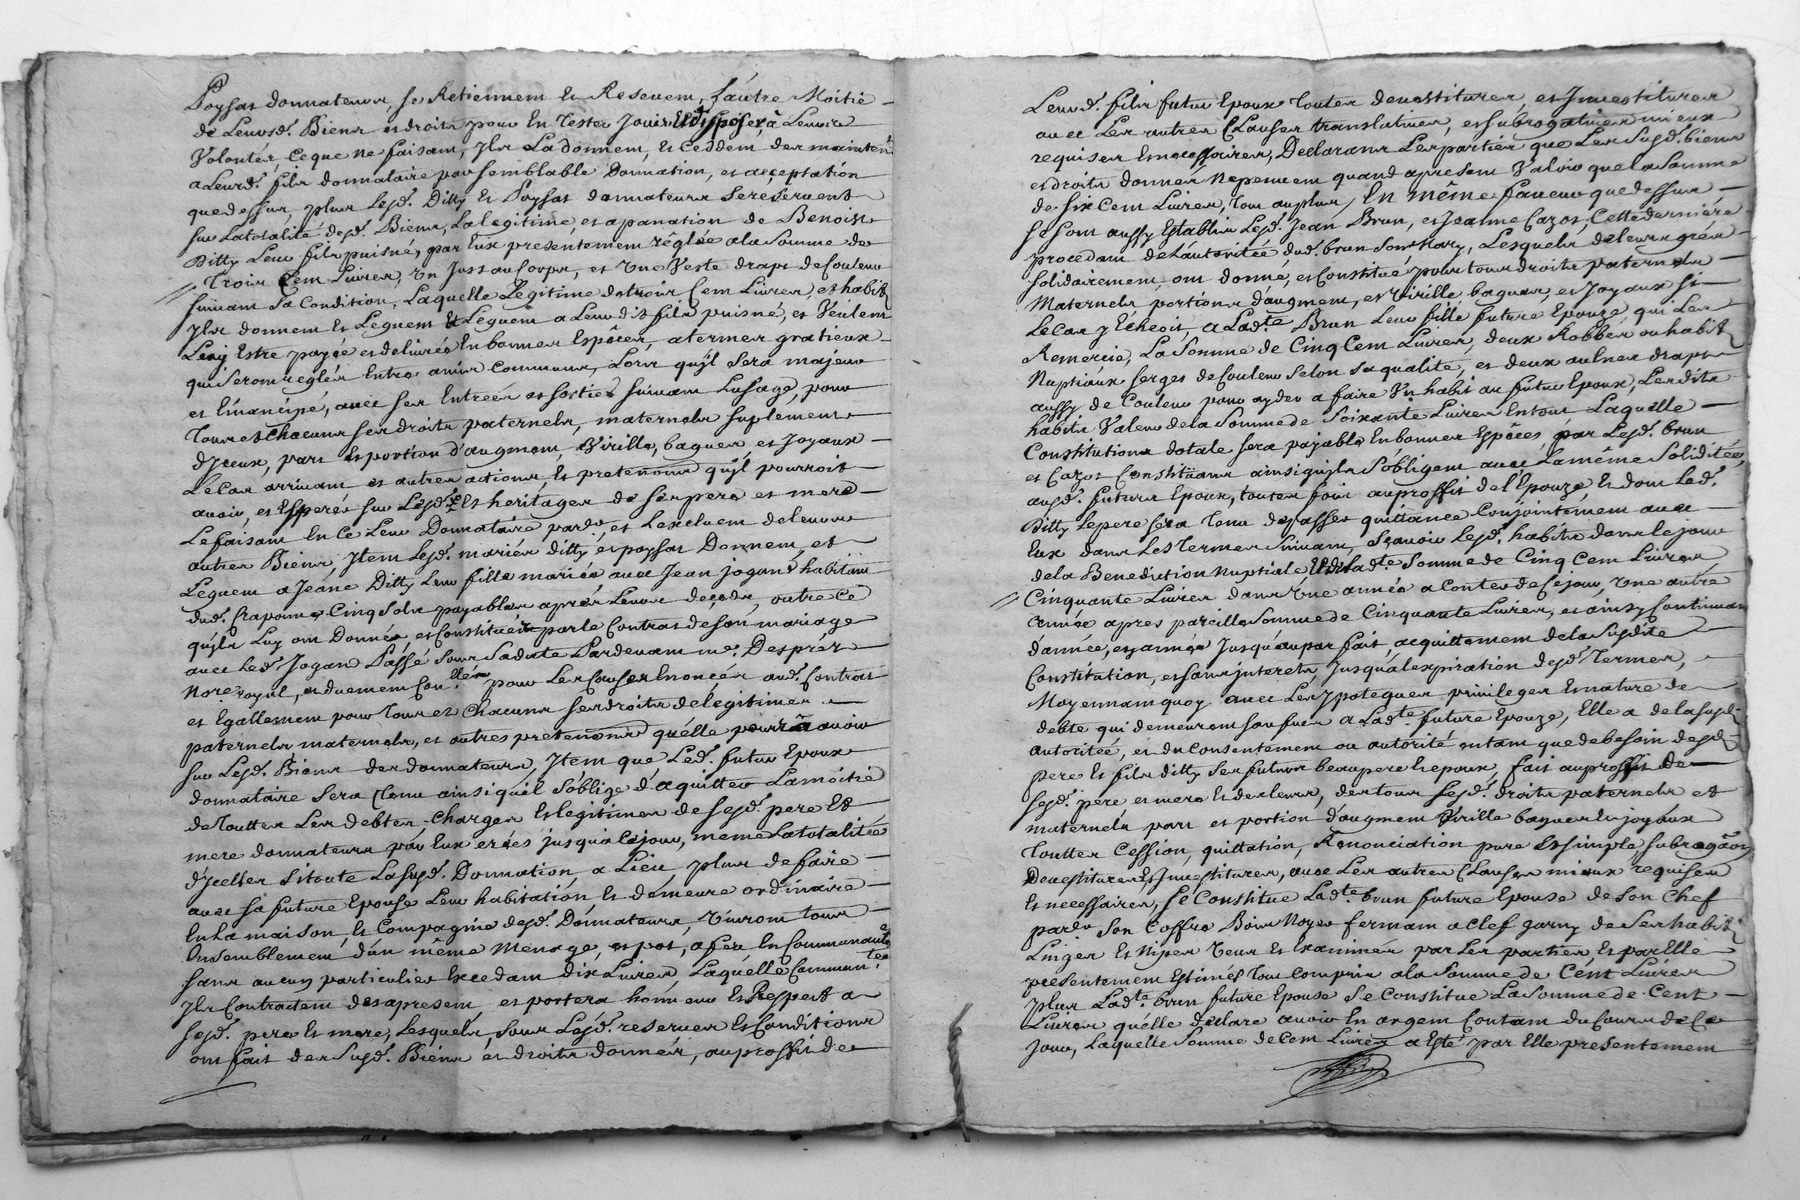 Poysat donnateurs, se Retiennent et Reservent, l'autre Moitié
de Leursd. Biens et droits pour En Tester Jouir Et disposer à Leurs
Volontés, Ce que Ne faisant, Ils La donnent, et Ceddent des mainten.t
a Leurd. fils donnataire par semblable Donnation, et acceptation
que dessus, plus Lesd. Ditty Et Poysat donnateurs se réservent
sur La totalité desd. Biens, La legitime, et apanation de Benoist
Ditty Leur fils puisné, par Eux presentement réglée a la Somme de
Trois Cent Livres, Un Justaucorps, et Une Veste draps de Couleur
suivant Sa Condition, Laquelle Legitime de trois Cent Livres, et habits
Ils donnent Et Leguent Et Leguent a Leurdit fils puisné, et Veulent
Luy Estre payée et delivrés En bonnes Espèces, a termes gratieux
qui Seront reglés Entre amis Communs, Lors qu'il Sera majeur
et Emancipé, avec ses Entrées et sorties suivant Lusage, pour
Tous et Chacuns ses droits paternels, maternels suplement
d'Iceux, part et portion d'augment, Virille, bagues, et Joyaux
Le Cas arrivant et autres actions, Et pretentions qu'il pourroit
avoir, et Esperer sur Lesd. Et heritages de ses pere et mere
Le faisant En Ce Leur Donnataire par.er, et L'excluent de leurs
autres Biens, Item Lesd. mariés Ditty, et poysat Donnent, et
Leguent a Jeane Ditty Leur fille mariée avec Jean Jogand habitant
dud. Craponne Cinq Sols payables après Leurs decods, outre Ce
qu'ils Luy ont Donné, et Constitué par le Contrat de son mariage
avec Led. Jogand Passé Sous Sadate Pardevant me. Desprès
Nore. royal, et duement Con.llé pour Les Causes Enoncés aud. Contrat
et Egallement pour Tous et Chacuns ses droits de legitimes
paternels maternels, et autres pretentions qu'elle pourra avoir
sur Lesd. Biens des donnateurs, Item que Led. futur Epoux
donnataire Sera Tenu ainsi qu'il S'oblige d'aquitter La moitié
de Toutter Les debtes Charges Et legitimes de sesd. pere Et
mere donnateurs par Eux creés jusqu'a Ce jour, meme La totalité
d'Icelles Si toute Lasusd. Donnation a Lieu, plus de faire
avec sa future Epouse Leur habitation Et demeure ordinaire
En La maison, Et Compagnie desd. Donnateurs, Vivront tous
Ensemblement d'un même Menage, et pot, a feu En Communauté
sans aucun particulier Excedant dix Livres, Laquelle Commun.té
Ils Contractent desapresent, et portera honneur Et Respect a
sesd. pere Et mere, Lesquels, sous Lesd. reserves Et Conditions
ont fait des Susd. Biens et droits donnés, au proffit de
Leurd. fils futur Epoux Touter devestitures, et Investitures
avec Les autres Clauses translatives, et subrogatives mieux
requises Et necessaires, Declarans Les parties que Les Susd. biens
et droits donnés Ne peuvent quand apresent Valoir que la Somme
de six Cent Livres, Tout au plus, En même faveur que dessus
se sont aussy Establis Lesd. Jean Brun, et Jeanne Cazot, Cette derniére
procedant de L'autorité dud. brun Son Mary, Lesquels de leurs grés
solidairement, ont donné, et Constitué, pour tous droits paternels
Maternels portions d'augment, et Virille, bagues, et Joyaux Si
Le Cas y Echéoit, a Ladte. Brun Leur fille future Epouze, qui Les
Remercie, La Somme de Cinq Cent Livres, deux Robbes ou habits
Nuptiaux serges de Couleur Selon Sa qualité, et deux aulnes draps
aussy de Couleur pour ayder a faire Un habit au futur Epoux, Lesdits
habits Valeur de la Somme de Soixante Livres En tout Laquelle
Constitution dotale sera payable En bonnes Espèces, par Lesd. brun
et Cazot Constituans ainsi qu'ils S'obligent avec La même Solidité,
ausd. futurs Epoux, toutes fois au proffit de l'Epouze Et dont Led.
Ditty Le pere Sera Tenu de passer quittance Conjointement avec
Eux dans Les Termes Suivans, Sçavoir Lesd. habits dans le jour
de la Benediction Nuptiale, Et Ladte Somme de Cinq Cent Livres
Cinquante Livres dans Une année a Conter de Ce jour, Une autre
année apres pareille Somme de Cinquante Livres, et ainsy Continuant
d'année, en année Jusqu'au parfait, acquittement de la Susdite
Constitution, et Sans interets, Jusqu'a l'expiration desd. Termes,
Moyennant quoy avec Les Ipoteques privileges Et nature de
debte qui demeurent Saufves a Ladte. future Epouze, Elle a de la susd.
autoritée, et du Consentement ou autorité en tant que de besoin desd.
pere Et fils ditty ses futurs beaupere Et epoux, fait au proffit de
sesd. pere et mere Et des leurs, de tous sesd. droits paternels et
maternels part et portion d'augment Virille bagues Et joyaux
Toutter Cession, quittation, Renonciation pure Et simple subrogaõn
Devestitures Et Investitures, avec Les autres Clauses mieux requises
Et necessaires, Se Constitue Ladte. brun future Epouse de Son Chef
par.er Son Coffre Bois Noyer fermant a Clef garny de Ses habits
Linges Et Nipes Veus Et Examinés par Les parties, Et par Elle
presentement Estimés Tout Compris a la Somme de Cent Livres
Plus Ladte. brun future Epouse Se Constitue La Somme de Cent
Livres qu'elle declare avoir En argent Contant du Cours de Ce
jour, Laquelle Somme de Cent Livres a Eté par Elle presentement